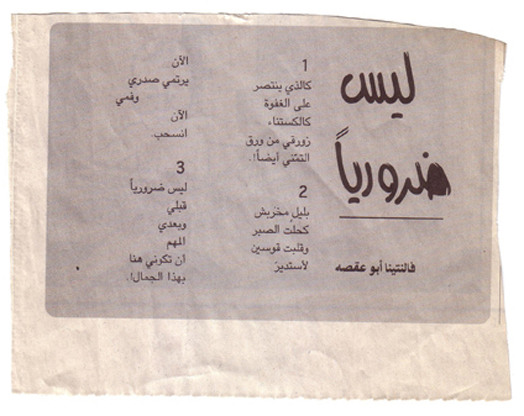 ليس
ضرورياً
فالنتينا أبو عقصه
1
كالذي ينتصر
على الغفوة
كالكستناء
زورقي من ورق
التمّني أيضاً!.
2
بليل مخربش
كحلت الصبر
وقلبت قوسين
لأستدير
الآن
يرتمي صدري
وفمي
الآن
انسحب.
3
ليس ضرورياً
قبلي
وبعدي
المهم
أن تكوني هنا
بهذا الجمال!.